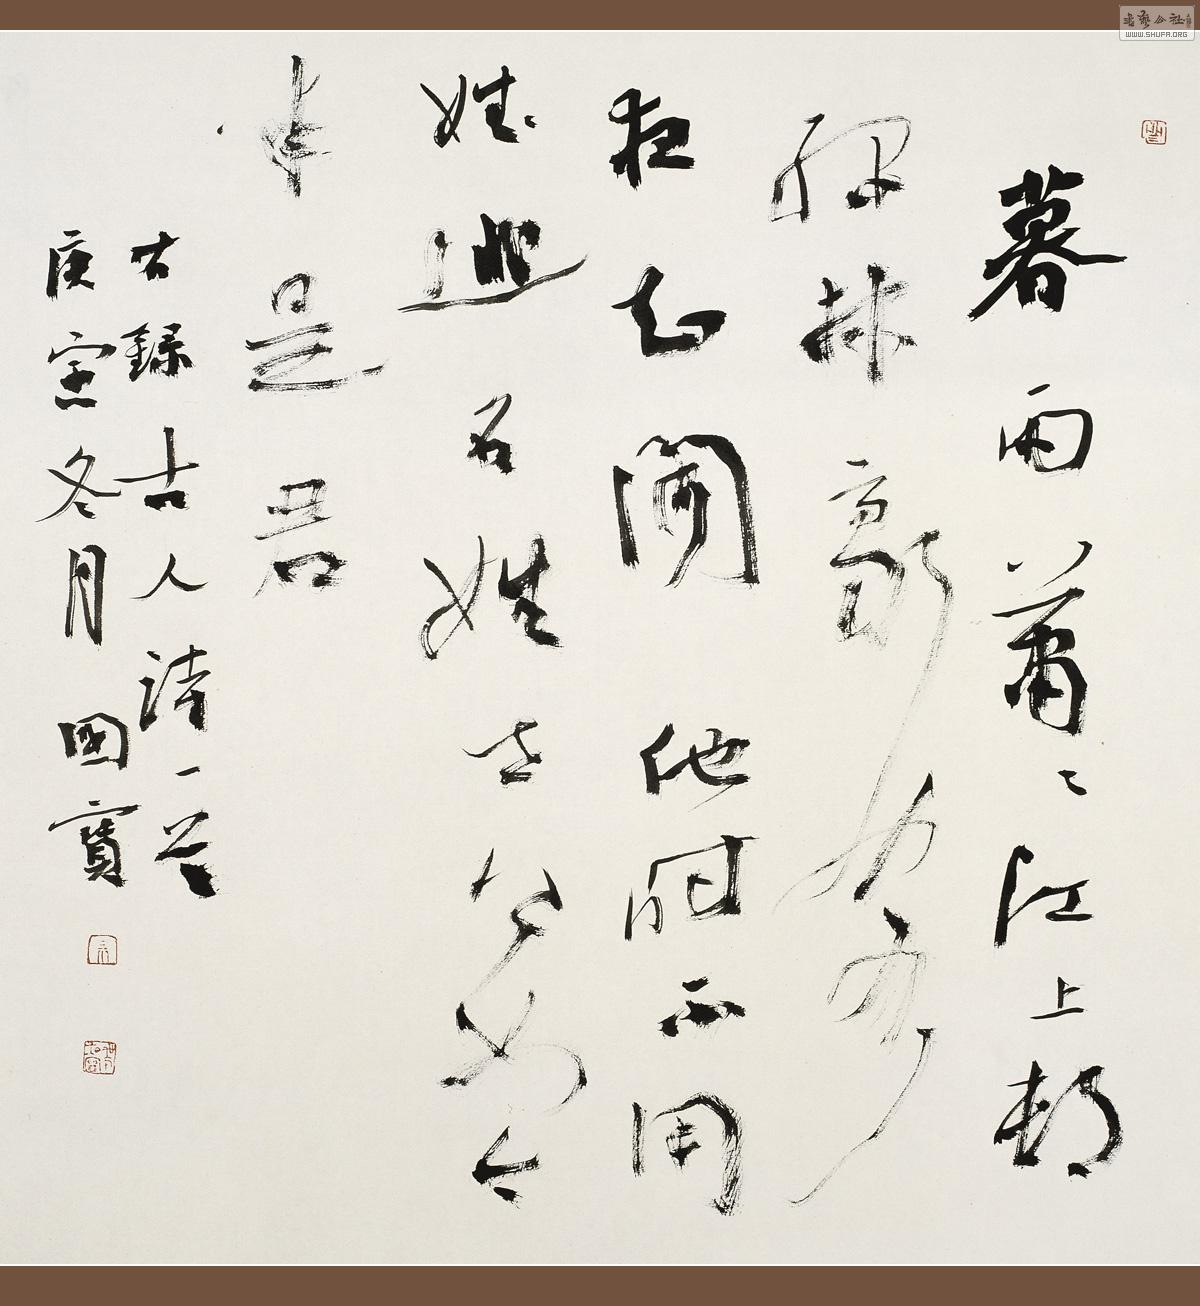 暮雨蕭々江上村
綠林豪客
夜知聞他時不用
姓逃名姓世上如今
半是君
右錄古人詩一首
庚寅冬月國寶
书艺公社
WWW.SHUFA.ORG